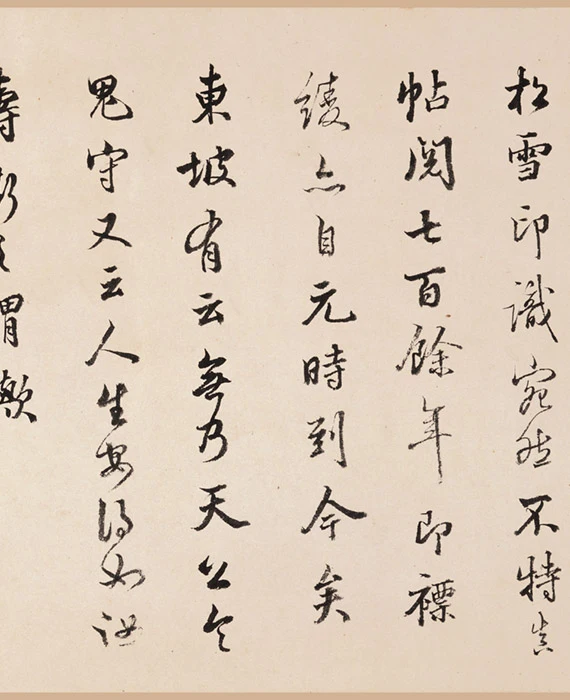 松雪印識宛然不特真
帖閱七百餘年即褾
綾亦自元時到今矣
東坡有云無乃天公令
鬼守又云人生安得如汝
壽斯之謂歟